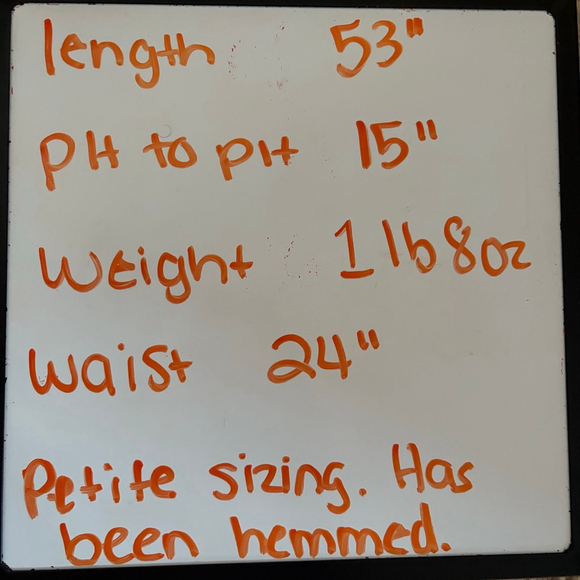 length 53"
pit to pit 15"
weight 1 lb 8oz
waist 24"
Petite sizing. Has
been hemmed.